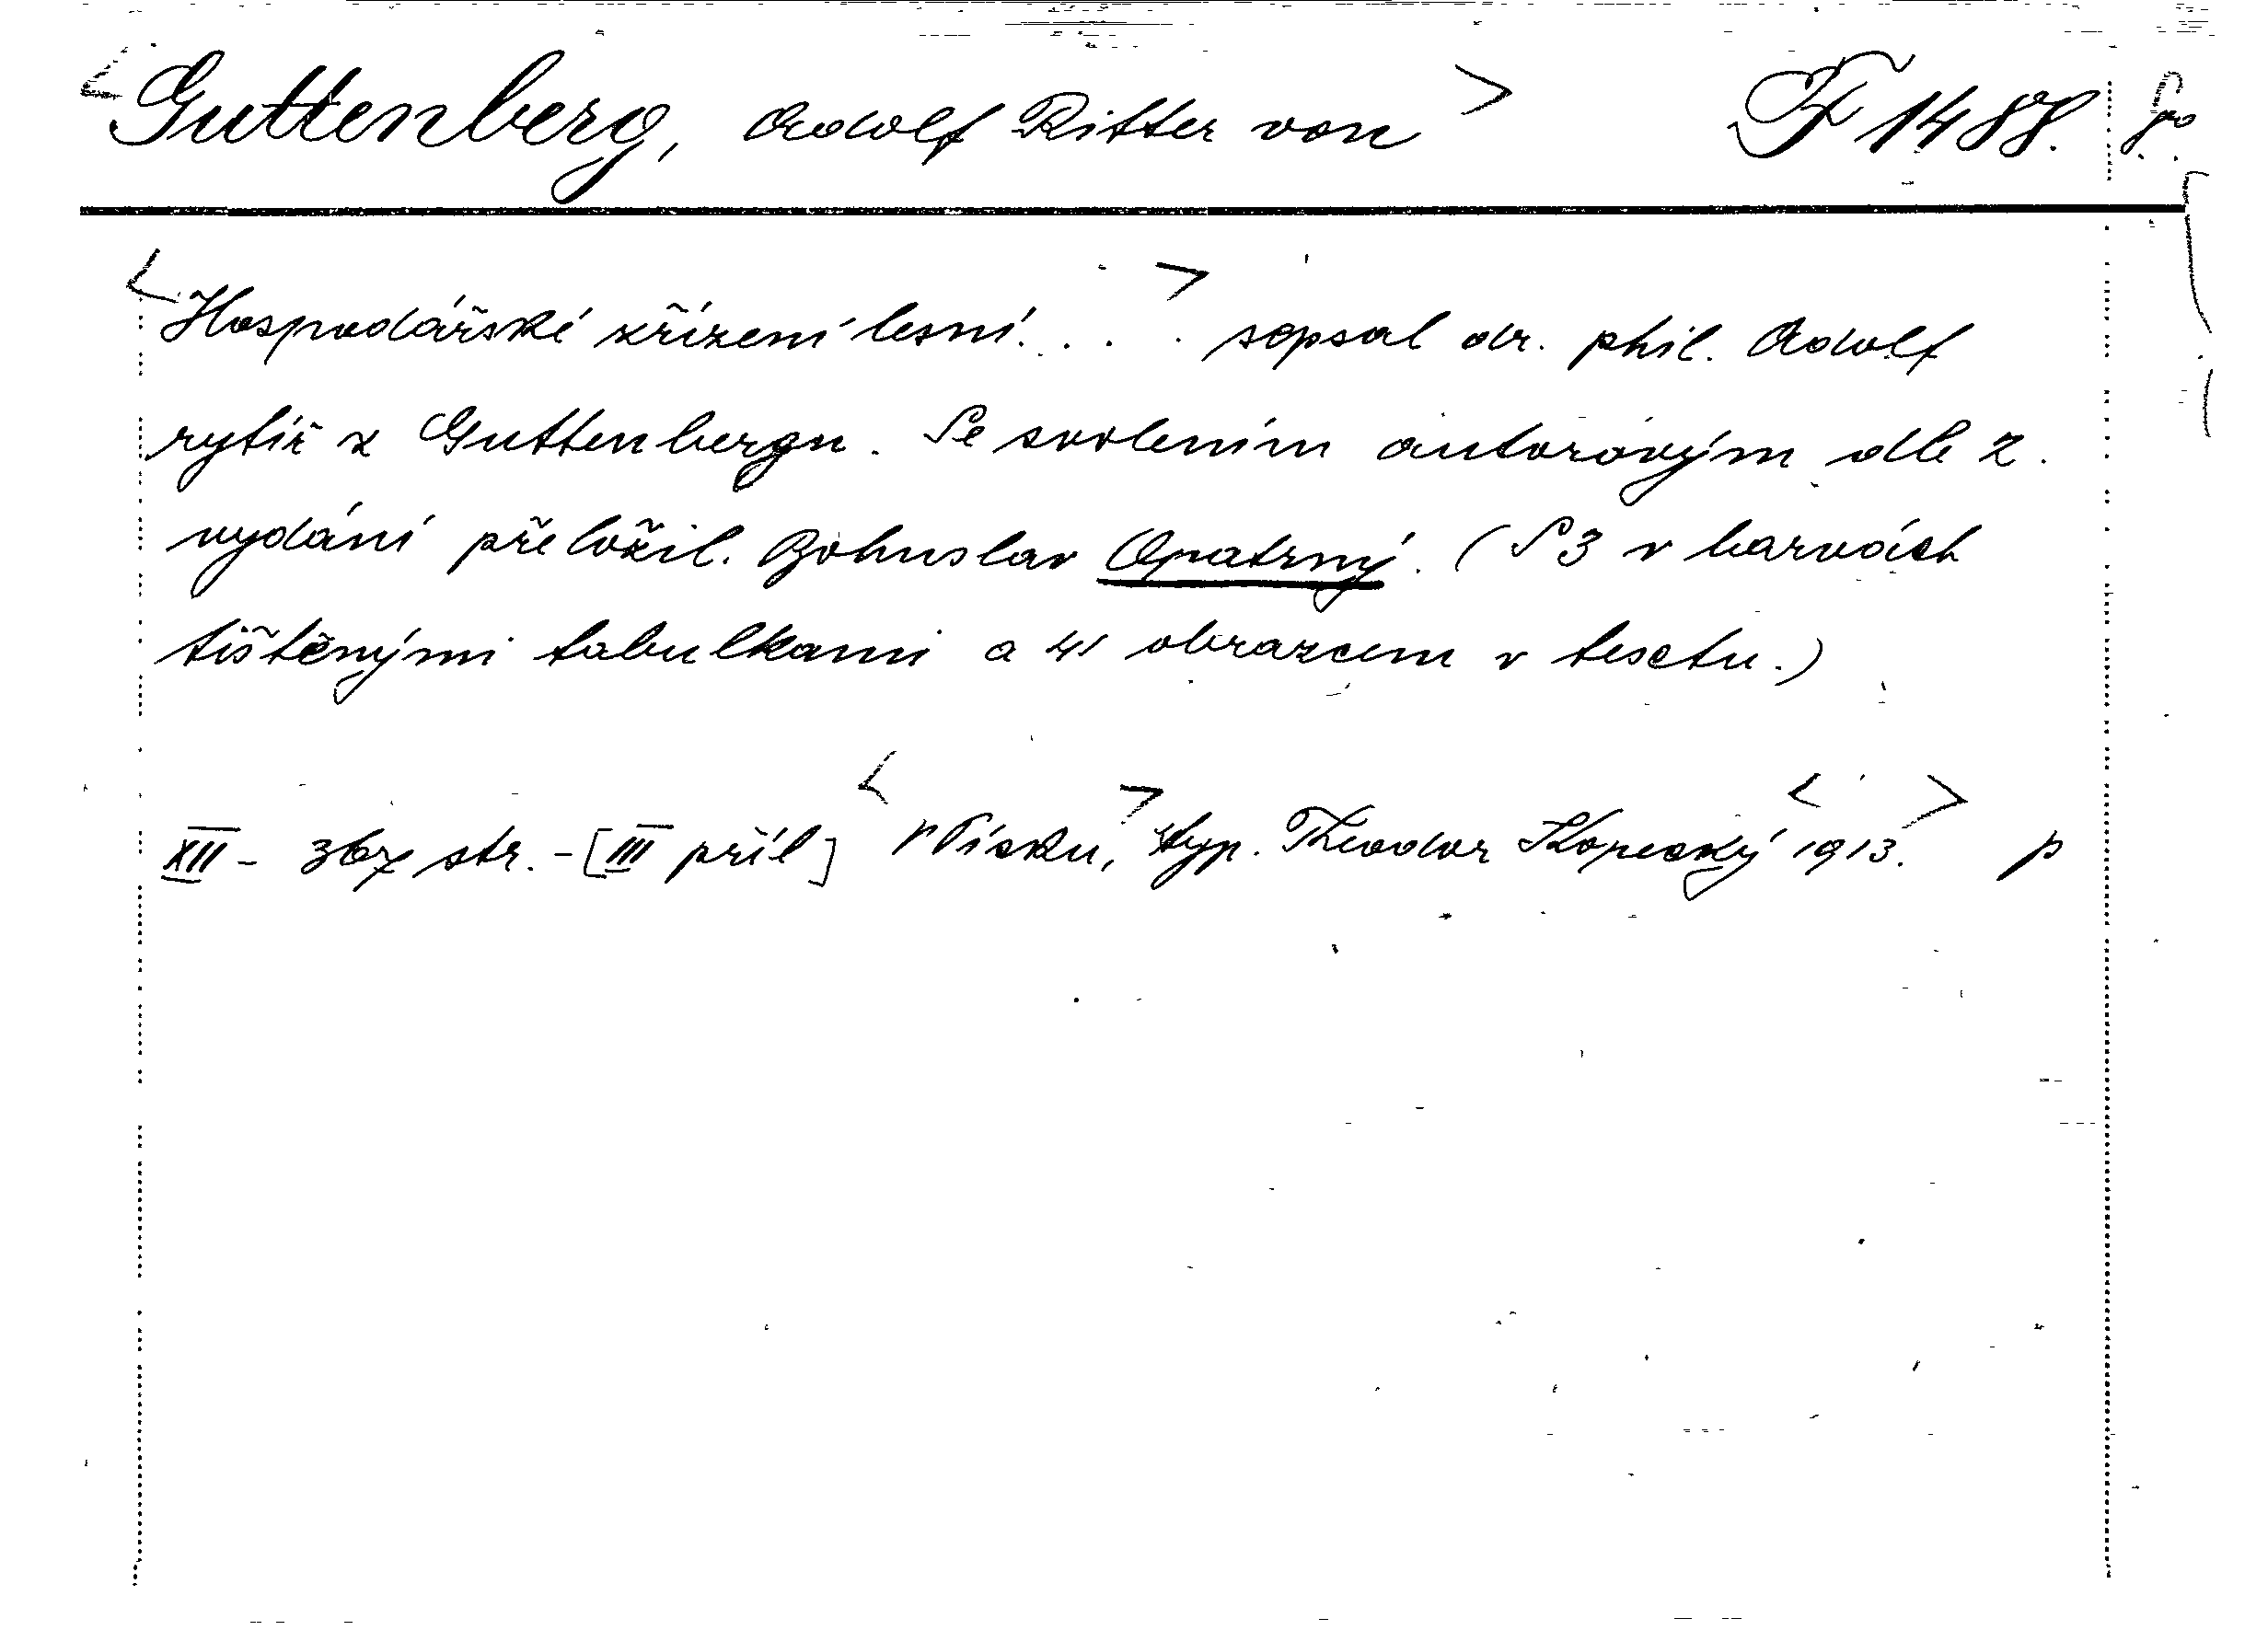 <Guttenberg, Adolf Ritter von> F 1488.
<Hospodářské zřízení lesní. . . .> sepsal dr. phil. Adolf
rytíř z Guttenbergu. Se svolením autorovým dle 2.
vydání přeložil. Bohuslav Opatrný. (S 3 v barvách
tištěnými tabulkami a 41 obrazcem v textu.)
XII - 367 str. - [III příl] <V Písku,> typ. Theodor Kopecký <1913.> p